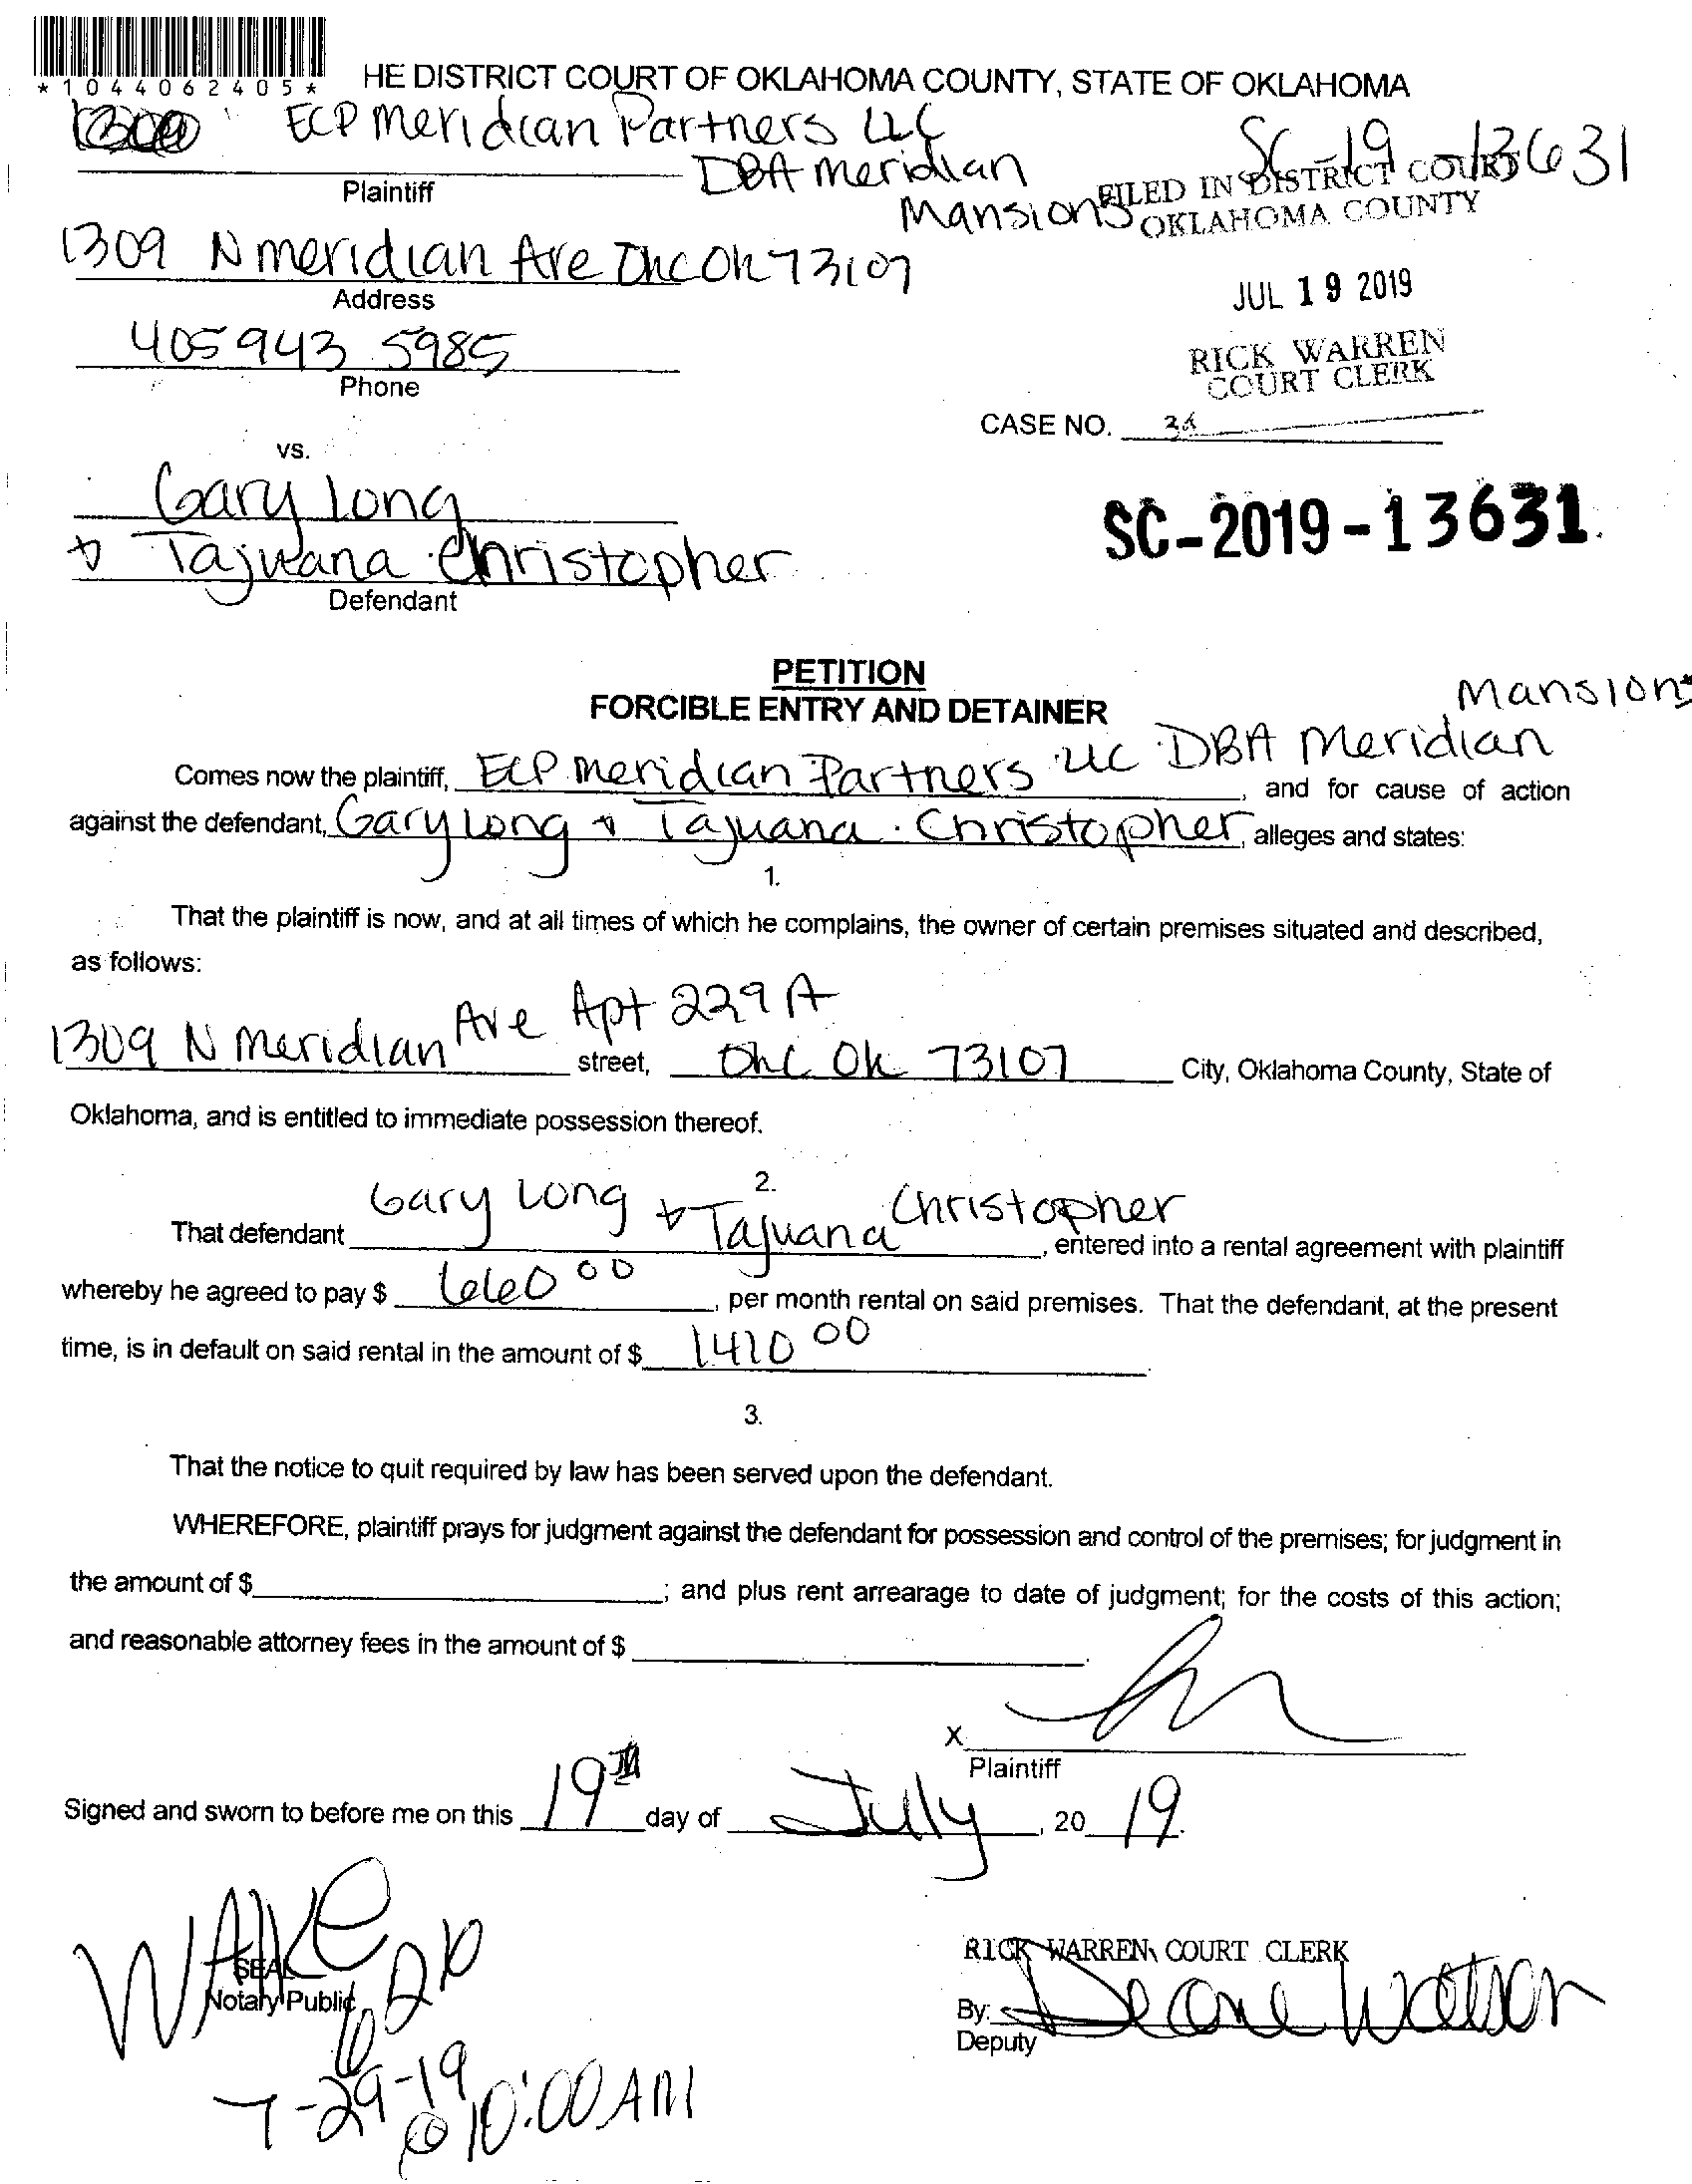 *1044062405*
HE DISTRICT COURT OF OKLAHOMA COUNTY, STATE OF OKLAHOMA
ECP Meridian Partners LLC
DBA Meridian
Mansions
SC-19-13631
Plaintiff
FILED IN DISTRICT COURT
OKLAHOMA COUNTY
1309 N Meridian Ave OKC OK 73107
Address
JUL 19 2019
405 943 5985
Phone
RICK WARREN
COURT CLERK
CASE NO.
vs.
Gary Long
& Tajuana Christopher
Defendant
SC-2019-13631
PETITION
FORCIBLE ENTRY AND DETAINER
Mansions
Comes now the plaintiff, ECP Meridian Partners LLC DBA Meridian, and for cause of action
against the defendant, Gary Long & Tajuana Christopher, alleges and states:
1.
That the plaintiff is now, and at all times of which he complains, the owner of certain premises situated and described,
as follows:
1309 N Meridian Ave Apt 229A street, OKC OK 73107 City, Oklahoma County, State of
Oklahoma, and is entitled to immediate possession thereof.
2.
That defendant Gary Long & Tajuana Christopher, entered into a rental agreement with plaintiff
whereby he agreed to pay $ 660 00, per month rental on said premises. That the defendant, at the present
time, is in default on said rental in the amount of $ 1410 00.
3.
That the notice to quit required by law has been served upon the defendant.
WHEREFORE, plaintiff prays for judgment against the defendant for possession and control of the premises; for judgment in
the amount of $ ; and plus rent arrearage to date of judgment; for the costs of this action;
and reasonable attorney fees in the amount of $ .
X
Plaintiff
Signed and sworn to before me on this 19th day of July, 20 19.
SEAL
Notary Public
RICK WARREN, COURT CLERK
By:
Deputy
7-29-19
@ 10:00 AM